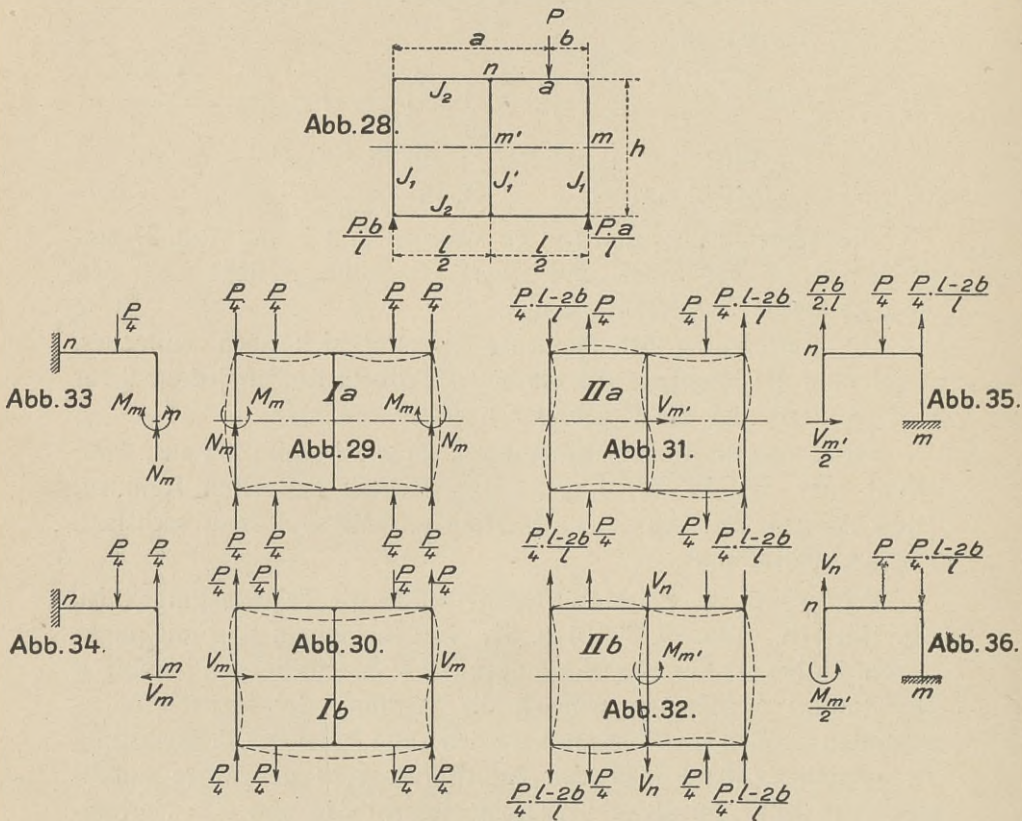 P
a b
n
J₂ a
Abb. 28. m' m h
J₁ J₁' J₁
J₂
P.b/l P.a/l
l/2 l/2
P/4 P/4 P/4 P/4
P/4
n
Abb. 33 M_m m
N_m
M_m Ia M_m
N_m Abb. 29. N_m
P/4 P/4 P/4 P/4
P/4·l-2b/l P/4 P/4 P/4·l-2b/l
IIa V_m'
Abb. 31.
P/4·l-2b/l P/4 P/4 P/4·l-2b/l
P.b/2.l P/4 P/4·l-2b/l
n
Abb. 35.
V_m'/2 m
P/4 P/4
n
Abb. 34. m
V_m
P/4 P/4 P/4 P/4
Abb. 30.
V_m V_m
Ib
P/4 P/4 P/4 P/4
V_n
IIb M_m'
Abb. 32.
P/4·l-2b/l P/4 V_n P/4 P/4·l-2b/l
V_n P/4 P/4·l-2b/l
n
Abb. 36.
M_m'/2 m